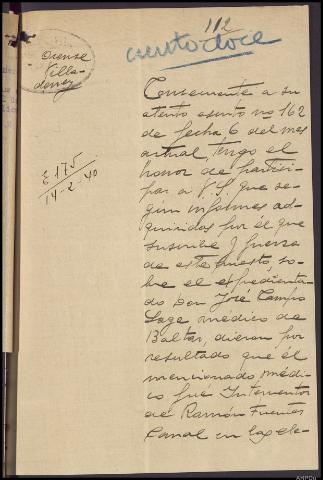 112
ciento doce
Orense
Villa-
E 175
14-2-40
Consecuente a su
atento escrito nº 162
de fecha 6 del mes
actual, tengo el
honor de partici-
par a V.S. que se-
gún informes ad-
quiridos por él que
suscribe y fuerza
de este puesto, so-
bre el expedienta-
do Don José Campo
Lage médico de
Baltar, dieron por
resultado que él
mencionado médi-
co fué Interventor
de Ramón Fuentes
Canal en las ele-
AHPOu